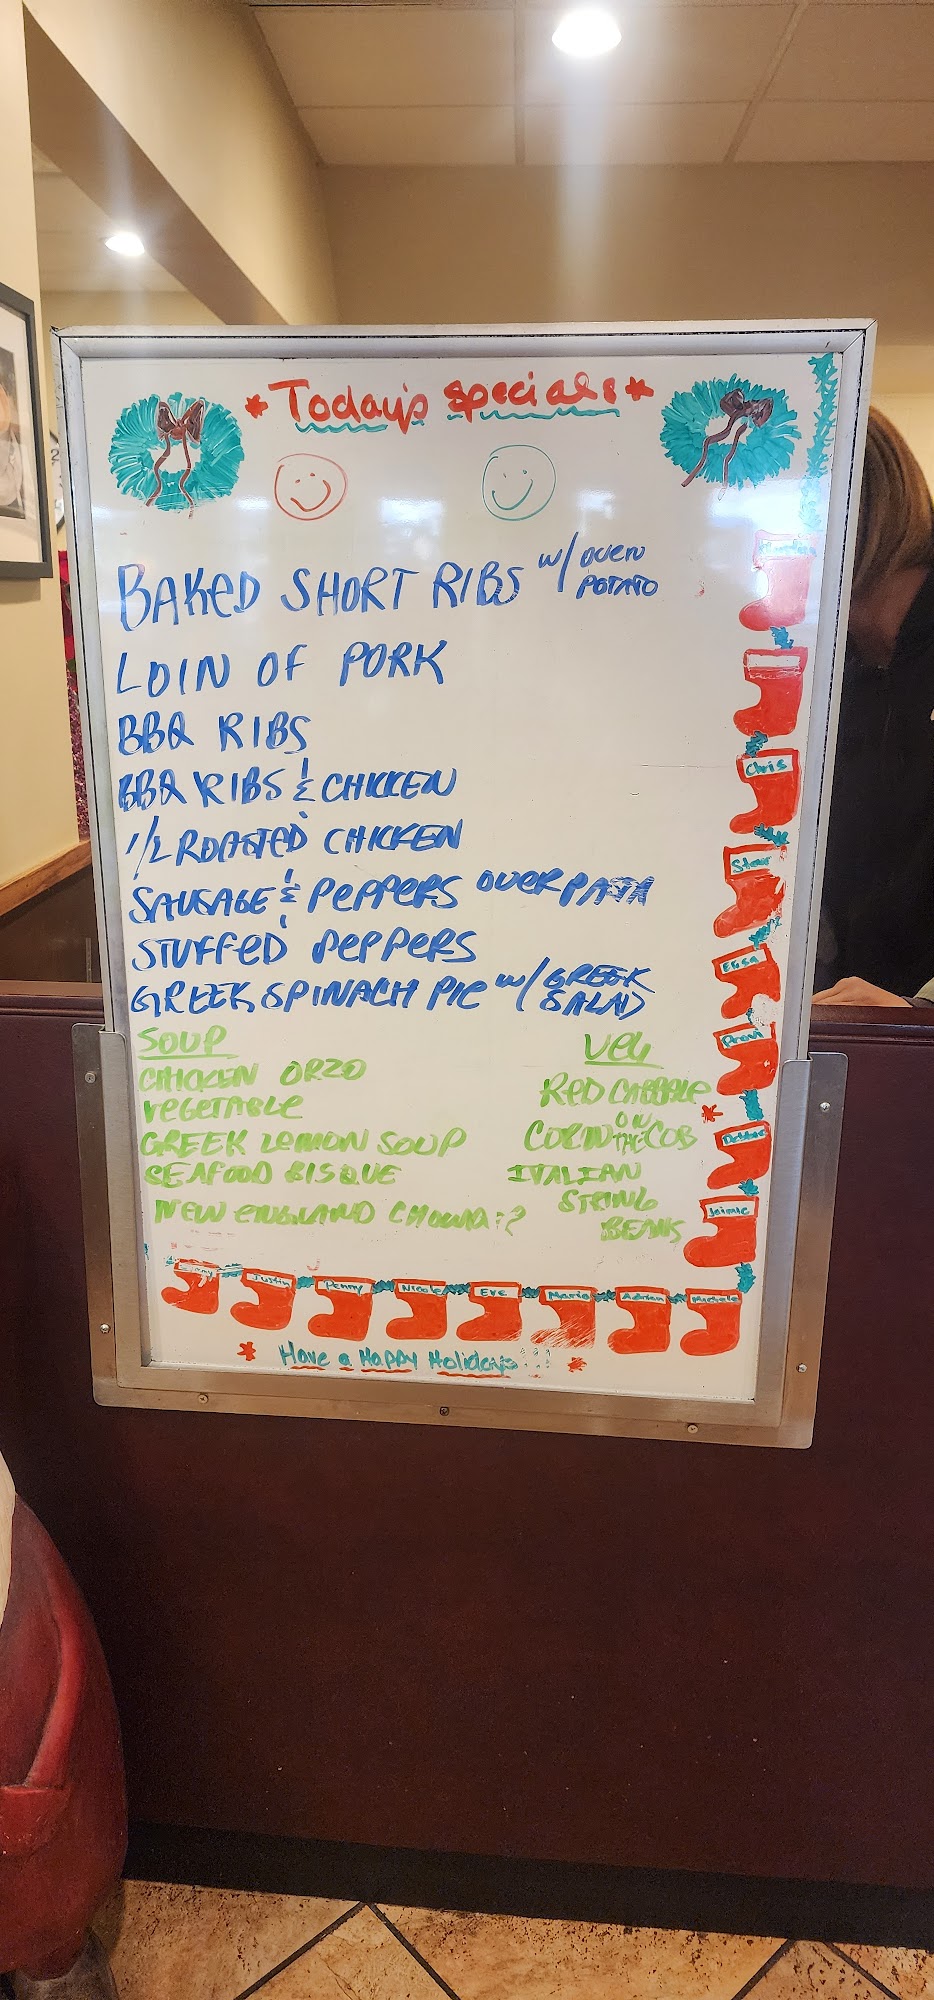 *Today's Specials*
BAKED SHORT RIBS w/ OVEN POTATO
LOIN OF PORK
BBQ RIBS
BBQ RIBS & CHICKEN
1/2 ROASTED CHICKEN
SAUSAGE & PEPPERS OVER PASTA
STUFFED PEPPERS
GREEK SPINACH PIE w/ GREEK SALAD
SOUP
CHICKEN ORZO
VEGETABLE
GREEK LEMON SOUP
SEAFOOD BISQUE
NEW ENGLAND CHOWDA
VEG
RED CABBAGE
CORN ON THE COB
ITALIAN
STRING
BEANS
Chris
Elsa
Debbie
Jaimie
Justin
Penny
Nicole
Eve
Maria
Adrian
Michele
* Have a Happy Holidays!!! *